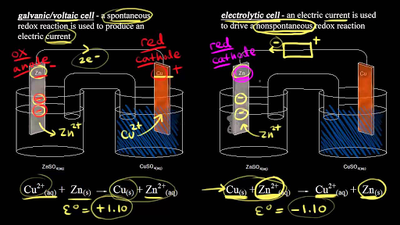 galvanic/voltaic cell - a spontaneous
redox reaction is used to produce an
electric current
ox
anode
red
cathode
2e⁻
Zn
Cu
-
+
Zn²⁺
Cu²⁺
ZnSO₄(aq)
CuSO₄(aq)
Cu²⁺(aq) + Zn(s) → Cu(s) + Zn²⁺(aq)
ε° = +1.10
electrolytic cell - an electric current is used
to drive a nonspontaneous redox reaction
red
cathode
- +
Zn
Cu
Zn²⁺
ZnSO₄(aq)
CuSO₄(aq)
Cu(s) + Zn²⁺(aq) → Cu²⁺(aq) + Zn(s)
ε° = -1.10